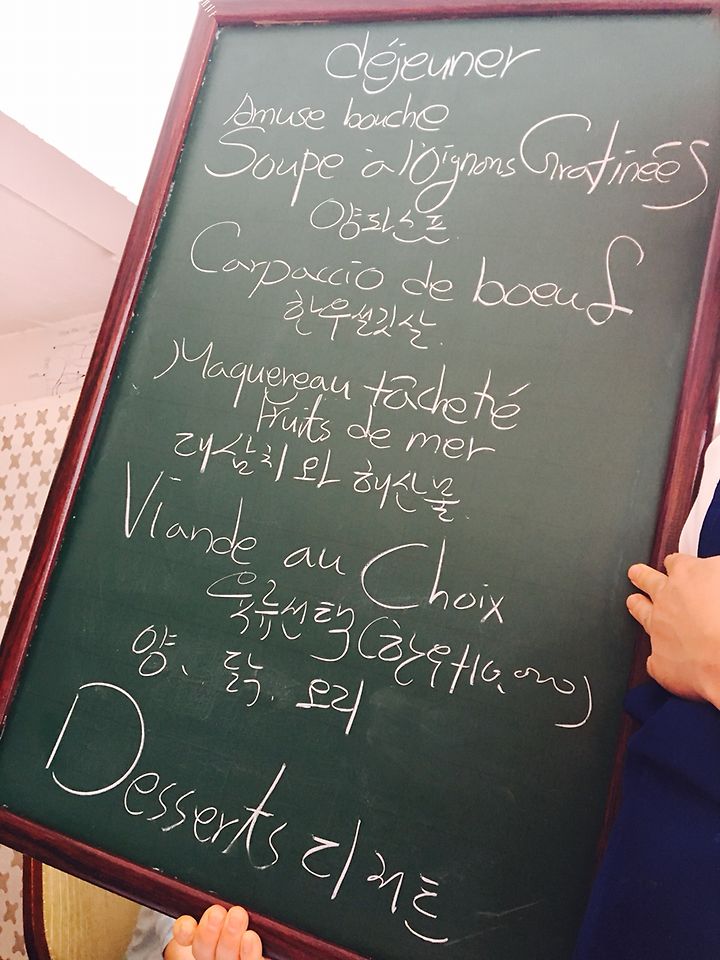 déjeuner
Amuse bouche
Soupe à l'Oignons Gratinées
양파스프.
Carpaccio de boeuf
한우설깃살.
Maquereau tâcheté
Fruits de mer
래삼치와 해산물.
Viande au Choix
육류선택(한우+10,000)
양、닭、오리
Desserts 디저트